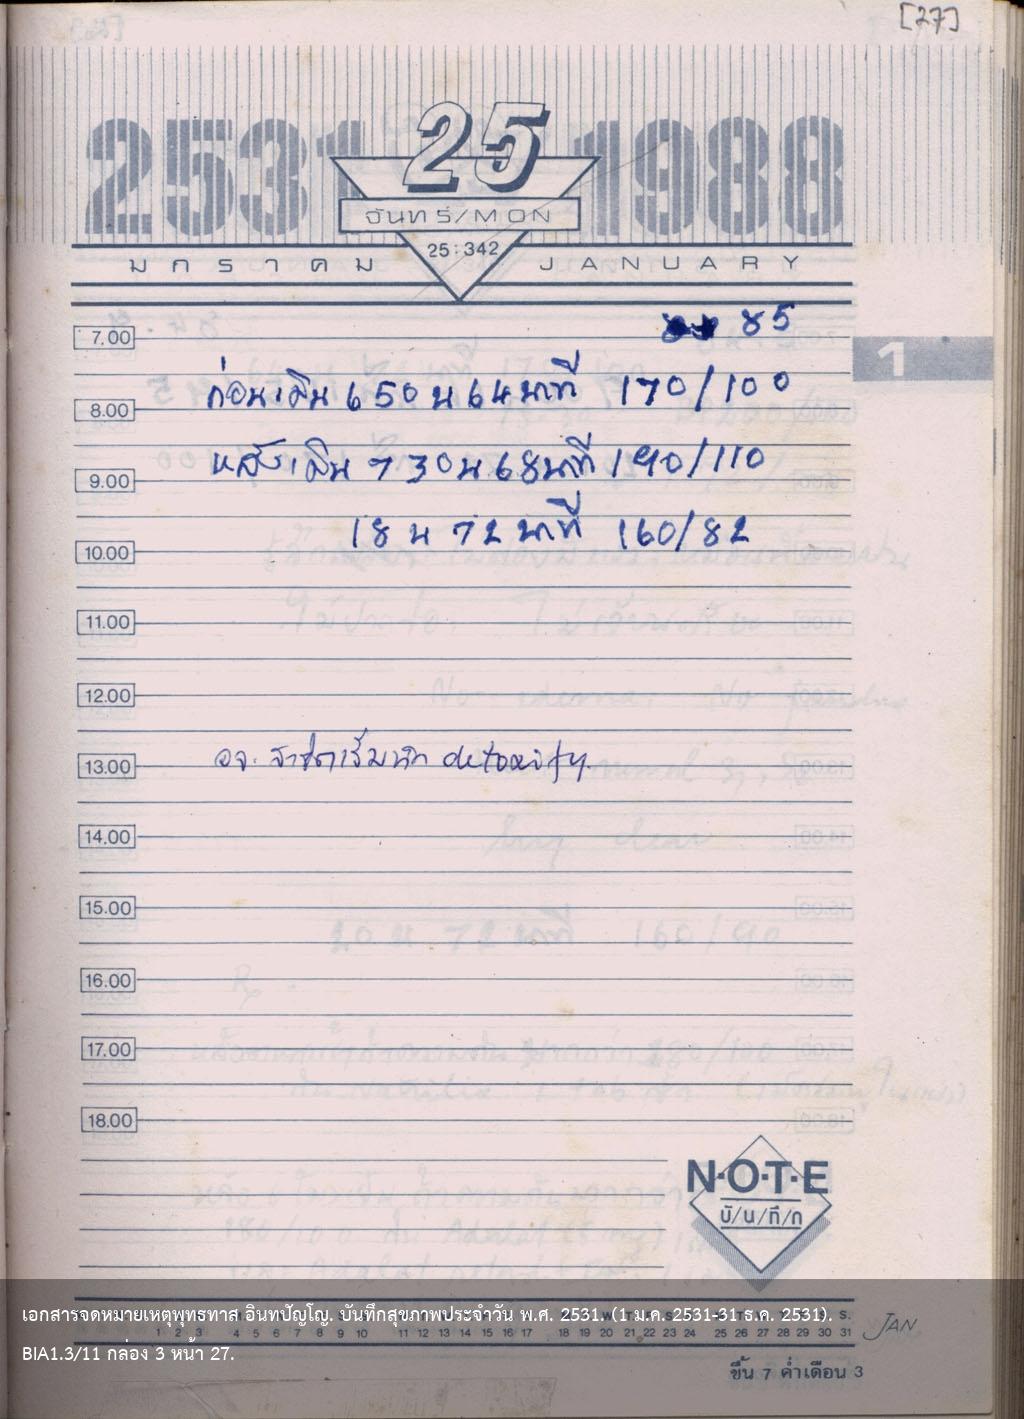 [27]
2531 25 1988
จันทร์/MON
25:342
มกราคม JANUARY
85
7.00
1
ก่อนเดิน 6 50 น 64 นาที 170/100
8.00
หลังเดิน 7 30 น 68 นาที 190/110
9.00
18 น 72 นาที 160/82
10.00
11.00
12.00
13.00 อจ. สาธิตเริ่ม detoxify.
14.00
15.00
16.00
17.00
18.00
N·O·T·E
บั/น/ทึ/ก
เอกสารจดหมายเหตุพุทธทาส อินทปัญโญ. บันทึกสุขภาพประจำวัน พ.ศ. 2531. (1 ม.ค. 2531-31 ธ.ค. 2531).
1 2 3 4 5 6 7 8 9 10 11 12 13 14 15 16 17 18 19 20 21 22 23 24 25 26 27 28 29 30 31 JAN
BIA1.3/11 กล่อง 3 หน้า 27.
ขึ้น 7 ค่ำเดือน 3